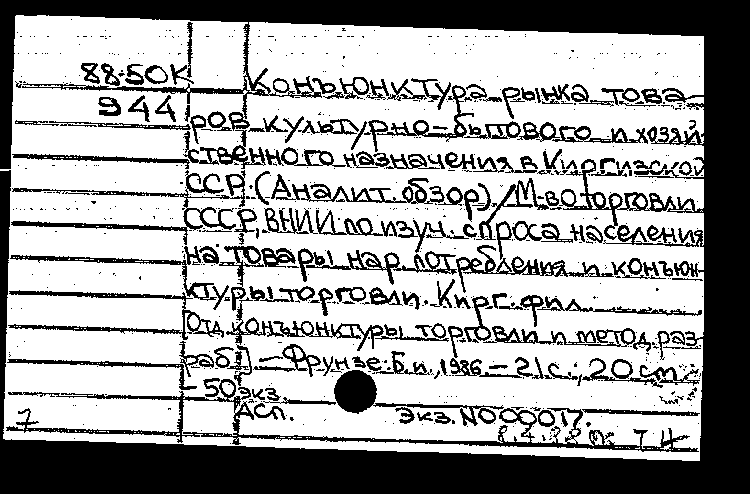 88-50К Конъюнктура рынка това-
944 ров культурно-бытового и хозяй-
ственного назначения в Киргизской
ССР. (Аналит. обзор) / М-во торговли
СССР, ВНИИ по изуч. спроса населения
на товары нар. потребления и конъюн-
ктуры торговли. Кирг. фил.
[Отд. конъюнктуры торговли и метод. раз-
раб.] - Фрунзе: Б.и., 1986. - 21 с.; 20 см.
- 50 экз.
АСП. Экз. N000017.
7